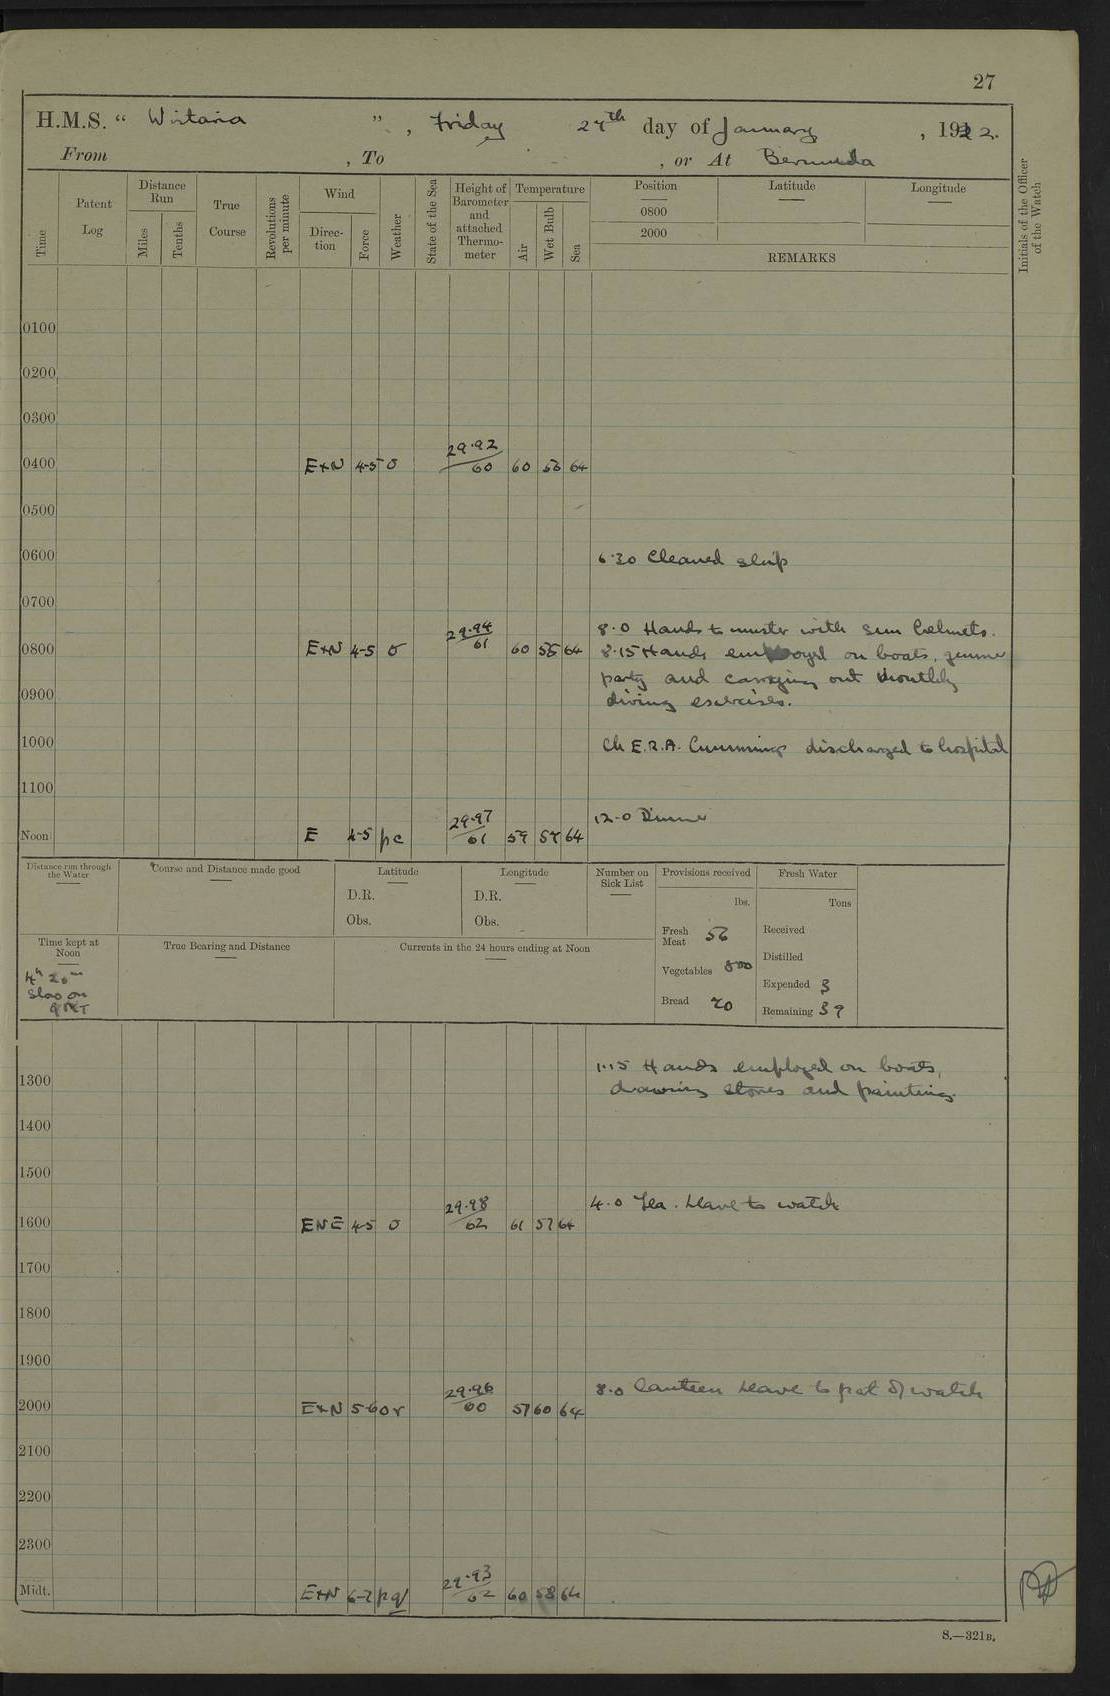 27
H.M.S. " Wistaria ", Friday 27th day of January, 1922.
From , To , or At Bermuda
Time
Patent Log
Distance Run
Miles
Tenths
True Course
Revolutions per minute
Wind
Direc-tion
Force
Weather
State of the Sea
Height of Barometer and attached Thermo-meter
Temperature
Air
Wet Bulb
Sea
Position
Latitude
Longitude
0800
2000
REMARKS
Initials of the Officer of the Watch
0100
0200
0300
0400 ExN 4-5 o 29.92/60 60 56 64
0500
0600 6.30 Cleaned ship
0700
8.0 Hands to muster with sun helmets.
0800 ExN 4-5 o 29.94/61 60 56 64 8.15 Hands employed on boats,
party and carrying out monthly
0900 diving exercises.
1000 Ch E.R.A. Cummings discharged to hospital
1100
12.0 Dinner
Noon E 4-5 pc 29.97/61 59 57 64
Distance run through the Water
Course and Distance made good
Latitude
D.R.
Obs.
Longitude
D.R.
Obs.
Number on Sick List
Provisions received
lbs.
Fresh Meat 56
Vegetables 800
Bread 70
Fresh Water
Tons
Received
Distilled
Expended 3
Remaining 39
Time kept at Noon
4h 20m
Slow on
GMT
True Bearing and Distance
Currents in the 24 hours ending at Noon
1.15 Hands employed on boats,
1300 drawing stores and painting.
1400
1500
4.0 Tea. Leave to watch
1600 ENE 4-5 o 29.98/62 61 57 64
1700
1800
1900
8.0 Canteen leave to part of watch
2000 ExN 5-6 or 29.96/60 57 60 64
2100
2200
2300
Midt. ExN 6-7 pq 29.93/62 60 58 64
S.—321B.